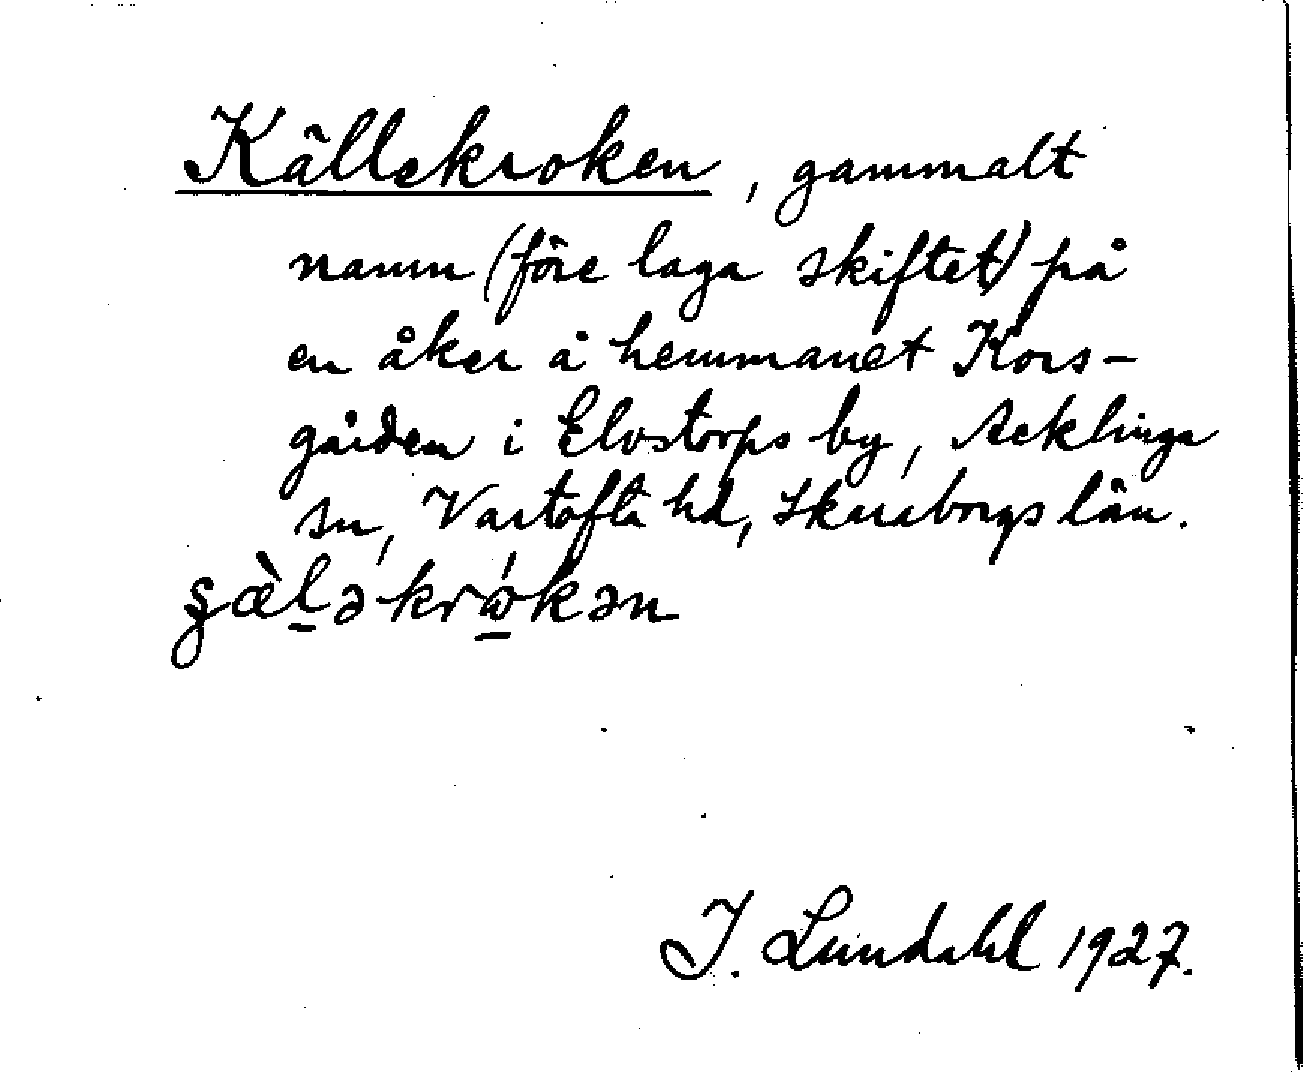 Källekroken, gammalt
namn (före laga skiftet) på
en åker å hemmanet Kors-
gården i Elvstorps by, Acklinga
sn, Vartofta hd, Skaraborgs län.
J. Lundahl 1927.